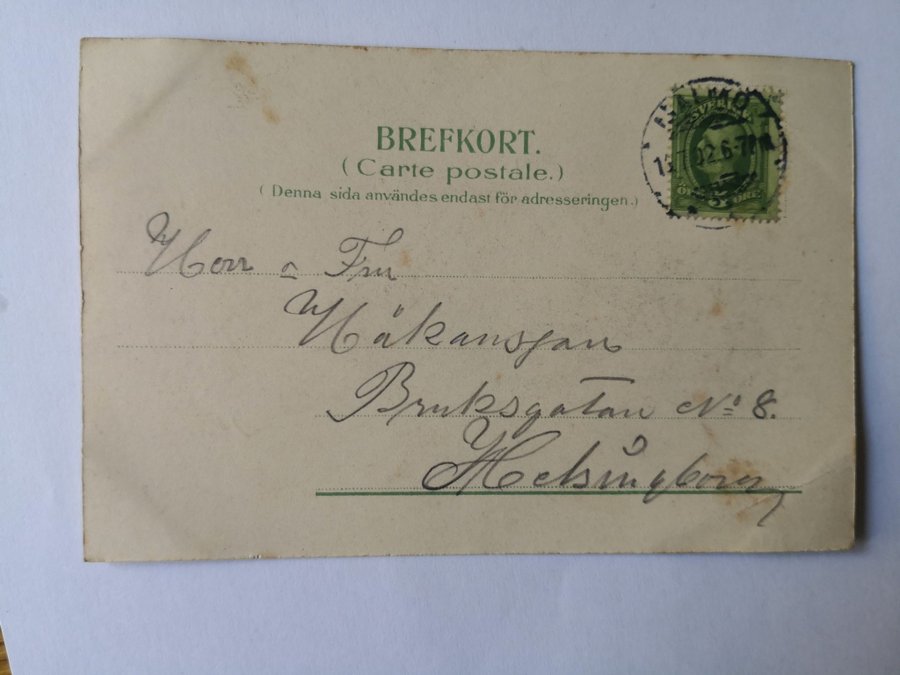 BREFKORT.
(Carte postale.)
(Denna sida användes endast för adresseringen.)
MALMÖ
SVERIGE
02.6-7
5 ÖRE
Herr o Fru
Håkansson
Bruksgatan No 8.
Helsingborg